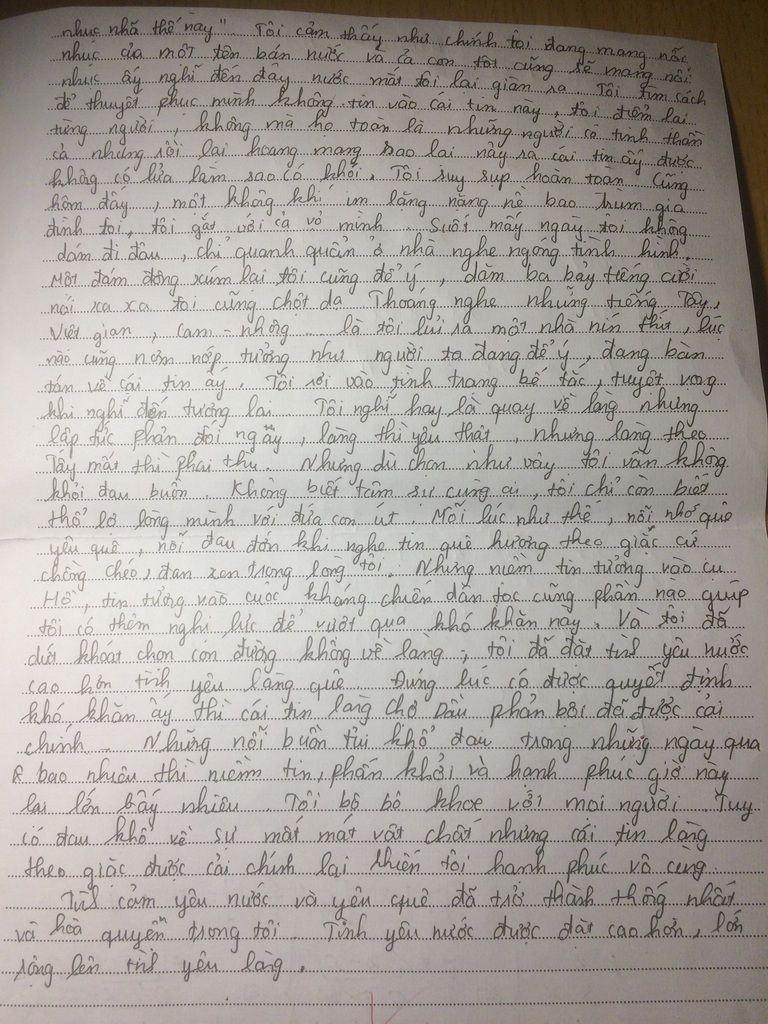 nhục nhã thế này". Tôi cảm thấy như chính tôi đang mang nỗi
nhục của một tên bán nước và cả con tôi cũng sẽ mang nỗi
nhục ấy nghĩ đến đây nước mắt tôi lại giàn ra. Tôi tìm cách
để thuyết phục mình không tin vào cái tin này, tôi điểm lại
từng người, không mà họ toàn là những người có tinh thần
cả nhưng rồi lại hoang mang sao lại nảy ra cái tin ấy được
không có lửa làm sao có khói. Tôi suy sụp hoàn toàn. Cũng
hôm đấy, một không khí im lặng nặng nề bao trùm gia
đình tôi, tôi gắt với cả vợ mình. Suốt mấy ngày tôi không
dám đi đâu, chỉ quanh quẩn ở nhà nghe ngóng tình hình.
Một đám đông xúm lại tôi cũng để ý, dăm ba bảy tiếng cười
nói xa xa tôi cũng chột dạ. Thoáng nghe những tiếng Tây,
Việt gian, cam-nhông... là tôi lủi ra một nhà nín thít, lúc
nào cũng nơm nớp tưởng như người ta đang để ý, đang bàn
tán về cái tin ấy. Tôi rơi vào tình trạng bế tắc, tuyệt vọng
khi nghĩ đến tương lai. Tôi nghĩ hay là quay về làng nhưng
lập tức phản đối ngay, làng thì yêu thật, nhưng làng theo
Tây mất thì phải thù. Nhưng dù chọn như vậy tôi vẫn không
khỏi đau buồn. Không biết tâm sự cùng ai, tôi chỉ còn biết
thổ lộ lòng mình với đứa con út. Mỗi lúc như thế, nỗi nhớ quê
yêu quê, nỗi đau đớn khi nghe tin quê hương theo giặc cứ
chồng chéo, đan xen trong lòng tôi. Nhưng niềm tin tưởng vào cụ
Hồ, tin tưởng vào cuộc kháng chiến dân tộc cũng phần nào giúp
tôi có thêm nghị lực để vượt qua khó khăn này. Và tôi đã
dứt khoát chọn con đường không về làng, tôi đã đặt tình yêu nước
cao hơn tình yêu làng quê. Đúng lúc có được quyết định
khó khăn ấy thì cái tin làng Chợ Dầu phản bội đã được cải
chính. Những nỗi buồn tủi khổ đau trong những ngày qua
bao nhiêu thì niềm tin, phấn khởi và hạnh phúc giờ này
lại lớn bấy nhiêu. Tôi bô bô khoe với mọi người. Tuy
có đau khổ về sự mất mát vật chất nhưng cái tin làng
theo giặc được cải chính lại khiến tôi hạnh phúc vô cùng.
Tình cảm yêu nước và yêu quê đã trở thành thống nhất
và hòa quyện trong tôi. Tình yêu nước được đặt cao hơn, lớn
rộng lên tình yêu làng.